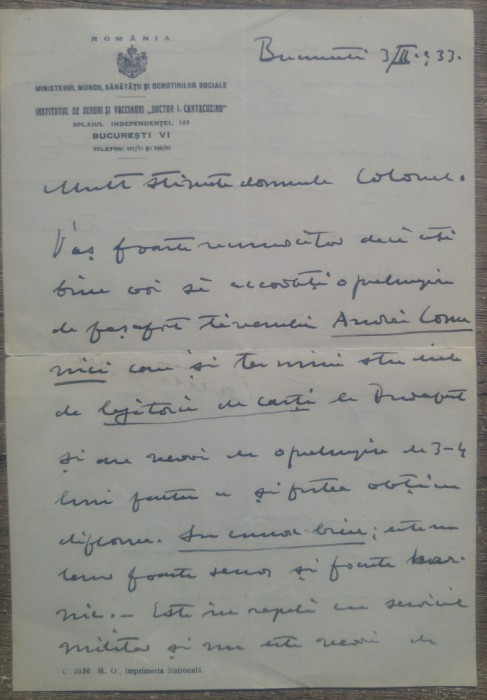 ROMÂNIA
MINISTERUL MUNCII, SĂNĂTĂȚII ȘI OCROTIRILOR SOCIALE
INSTITUTUL DE SERURI ȘI VACCINURI „DOCTOR I. CANTACUZINO"
SPLAIUL INDEPENDENȚEI, 103
BUCUREȘTI VI
TELEFON:
București 3/III 933.
Mult stimate domnule Colonel.
V'aș foarte recunoscător dacă ați
bine voi să acordați o prelungire
de pașaport tânărului Andrei Comu
nici care își termină studiile
de legătorie de cărți la
și are nevoie de o prelungire de 3-4
luni pentru a și putea obține
diploma. Îl cunosc bine; este un
foarte serios și foarte har-
nic. — Este în regulă cu serviciul
militar și nu este nevoie de
C. 2086. M. O., Imprimeria Națională